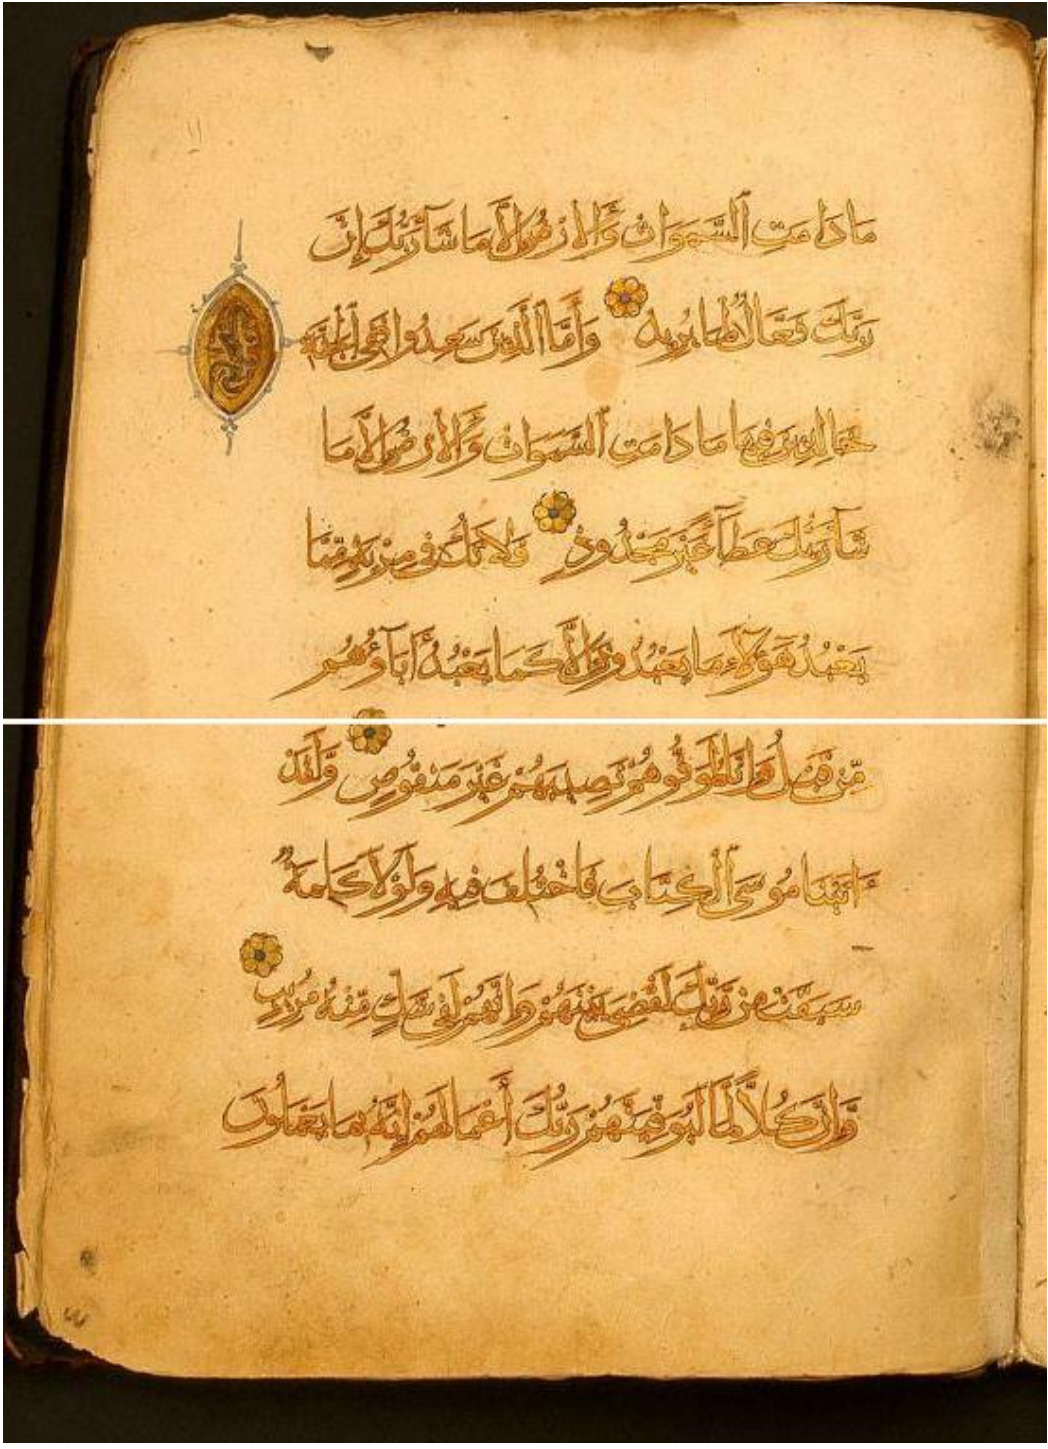 مَا دَامَتِ ٱلسَّمَوَاتُ وَٱلْأَرْضُ إِلَّا مَا شَآءَ رَبُّكَ إِنَّ
رَبَّكَ فَعَّالٌ لِّمَا يُرِيدُ وَأَمَّا ٱلَّذِينَ سَعِدُوا فَفِى ٱلْجَنَّةِ
خَالِدِينَ فِيهَا مَا دَامَتِ ٱلسَّمَوَاتُ وَٱلْأَرْضُ إِلَّا مَا
شَآءَ رَبُّكَ عَطَآءً غَيْرَ مَجْذُوذٍ فَلَا تَكُ فِى مِرْيَةٍ مِّمَّا
يَعْبُدُ هَؤُلَآءِ مَا يَعْبُدُونَ إِلَّا كَمَا يَعْبُدُ آبَآؤُهُم
مِّن قَبْلُ وَإِنَّا لَمُوَفُّوهُمْ نَصِيبَهُمْ غَيْرَ مَنقُوصٍ وَلَقَدْ
ءَاتَيْنَا مُوسَى ٱلْكِتَابَ فَاخْتُلِفَ فِيهِ وَلَوْلَا كَلِمَةٌ
سَبَقَتْ مِن رَّبِّكَ لَقُضِىَ بَيْنَهُمْ وَإِنَّهُمْ لَفِى شَكٍّ مِّنْهُ مُرِيبٍ
وَإِنَّ كُلًّا لَّمَّا لَيُوَفِّيَنَّهُمْ رَبُّكَ أَعْمَالَهُمْ إِنَّهُ بِمَا يَعْمَلُونَ